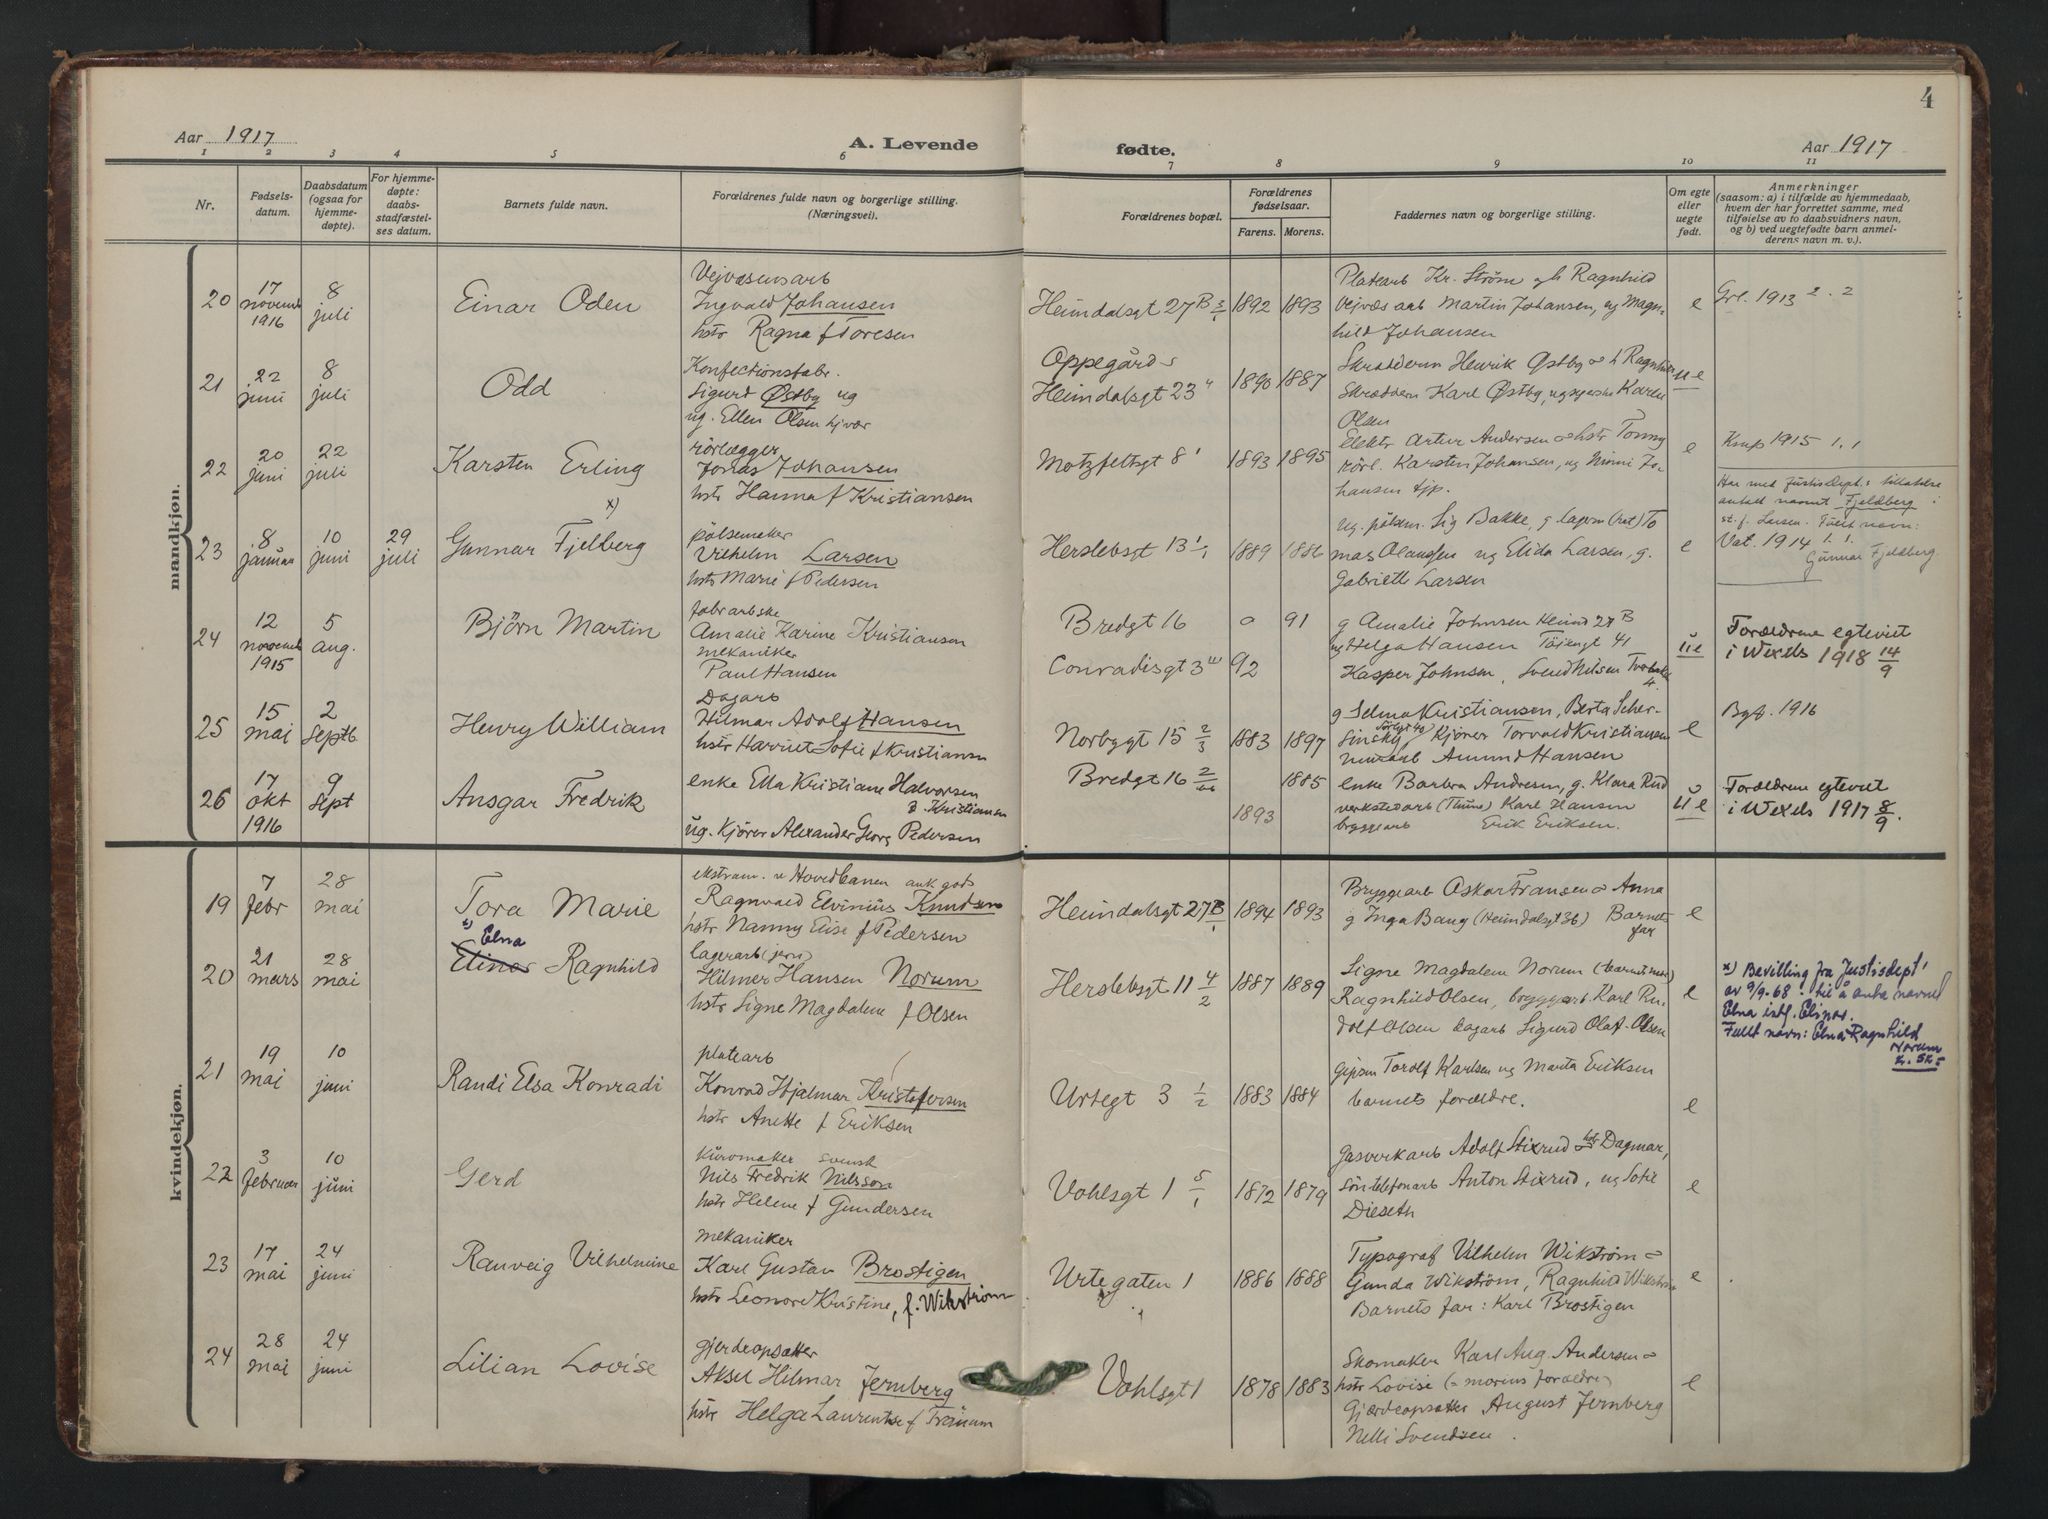 4
Aar 1917
A. Levende
fødte.
Aar 1917
1 2 3 4 5 6 7 8 9 10 11
Nr.
Fødsels-
datum.
Daabsdatum
(ogsaa for
hjemme-
døpte).
For hjemme-
døpte:
daabs-
stadfæstel-
ses datum.
Barnets fulde navn.
Forældrenes fulde navn og borgerlige stilling.
(Næringsvei).
Forældrenes bopæl.
Forældrenes
fødselsaar.
Farens. Morens.
Faddernes navn og borgerlige stilling.
Om egte
eller
uegte
født.
Anmerkninger
(saasom: a) i tilfælde av hjemmedaab,
hvem der har forrettet samme, med
tilføielse av to daabsvidners navn,
og b) ved uegtefødte barn anmel-
derens navn m. v.).
mandkjøn.
20
17
novemb
1916
8
juli
Einar Oden
Vejvæsensarb
Ingvald Johansen
hstr Ragna f Toresen
Heimdalsgt 27 B 3/1
1892 1893
Platearb Kr. Strøm og h Ragnhild
Vejvæs arb Martin Johansen, ug Magn-
hild Johansen
e
Grl. 1913 2.2
21
22
juni
8
juli
Odd
Konfectionsfabr.
Sigurd Østby ug
ug. Ellen Olsen hjvær
Oppegård
Heimdalsgt 23
1890 1887
Skrædderm Henrik Østby = h Ragnhild
Skræddern Karl Østby, ug Karen
Olsen
u e
22
20
juni
22
juli
Karsten Erling
rörlægger
Jonas Johansen
hstr Hanna f Kristiansen
Motzfeltsgt 8
1893 1895
Elektr Artur Andersen = hstr Tonny
rörl. Karsten Johansen, ug Mimi Jo-
hansen tjp.
e
Kmp 1915 1.1
23
8
januar
10
juni
29
juli
Gunnar Fjelberg x)
pölsemaker
Vilhelm Larsen
hstr Marie f Pedersen
Herslebsgt 13 1/1
1889 1886
ug. pölsm. Sig Bakke, g lagerm (rat) To
mas Olaussen ug Elida Larsen, g.
Gabriell Larsen
e
Har med Justisdept.s tilladelse
antat navnet Fjeldberg i
st. f. Larsen. Fuldt navn:
Gunnar Fjeldberg.
Vat. 1914 1.1.
24
12
novemb
1915
5
aug.
Björn Martin
fabrarbske
Amalie Karine Kristiansen
mekaniker
Paul Hansen
Bredgt 16
Conradisgt 3
o 91
92
g Amalie Johnsen Heimd 27 B
ug Helga Hansen Töiengt 41
Kasper Johnsen, Svend Nilsen
4.
ue
Forældrene egteviet
i Wexels 1918 14/9
25
15
mai
2
septb.
Henry William
Dagarb
Hilmar Adolf Hansen
hstr Harriet Sofie f Kristiansen
Norbygt 15 2/3
1883 1897
g Selma Kristiansen, Berta Scher-
sinsky Kjörer Torvald Kristiansen
murarb Amund Hansen
e
Bgf. 1916
26
17
okt
1916
9
sept
Ansgar Fredrik
enke Ella Kristiane Halvorsen
f Kristiansen
ug. Kjörer Alexander Georg Pedersen
Bredgt 16
1885
1893
enke Barbra Andresen, g. Klara Rud
verkstedarb (Thune) Karl Hansen
bryggearb Erik Eriksen.
u e
Forældrene egteviet
i Wexels 1917 8/9.
kvindekjøn.
19
7
febr
28
mai
Tora Marie
ekstram. v Hovedbanen ank gods
Ragnvald Elvinius Knudsen
hstr Nanny Elise f Pedersen
Heimdalsgt 27 B/1
1894 1893
Bryggearb Oskar Fransen = Anna
g Inga Bang (Heimdalsgt 36) Barnets
far
e
20
21
mars
28
mai
x) Elna
Elinor Ragnhild
lagerarb (jern)
Hilmer Hansen Norum
hstr Signe Magdalene f Olsen
Herslebsgt 11 4/2
1887 1889
Signe Magdalene Norum (barnets mor)
Ragnhild Olsen, bryggearb Karl Ru-
dolf Olsen dagarb Sigurd Olaf Olsen
e
x) Bevilling fra Justisdept.
av 9/9-68 til å anta navnet
Elna istf. Elinor.
Fullt navn: Elna Ragnhild
Norum
21
19
mai
10
juni
Randi Elsa Konradi
platearb
Konrad Hjalmar Kristofersen
hstr Anette f Eriksen
Urtegt 3 1/2
1883 1884
gipsm Torolf Karlsen ug Marta Eriksen
barnets forældre.
e
22
3
februar
10
juni
Gerd
kuromaker svensk
Nils Fredrik Nilsson
hstr Helene f Gundersen
Vahlsgt 1 5/1
1872 1879
Gasverkarb Adolf Stixrud hstr Dagmar,
Sön telefonarb Anton Stixrud, ug Sofie
Dieseth
e
23
17
mai
24
juni
Ranveig Vilhelmine
mekaniker
Karl Gustav Brostigen
hstr Leonore Kristine, f. Wikström
Urtegaten 1
1886 1888
Typograf Vilhelm Wikström =
Gunda Wikström, Ragnhild Wikström
Barnets far: Karl Brostigen
e
24
28
mai
24
juni
Lilian Lovise
gjerdeopsætter
Aksel Hilmar Jernberg
hstr Helga Laurentse f Tranum
Vahlsgt 1
1878 1883
Skomaker Karl Aug. Andersen =
hstr Lovise (= morens forældre)
Gjærdeopsætter August Jernberg
Nelli Svendsen.
e